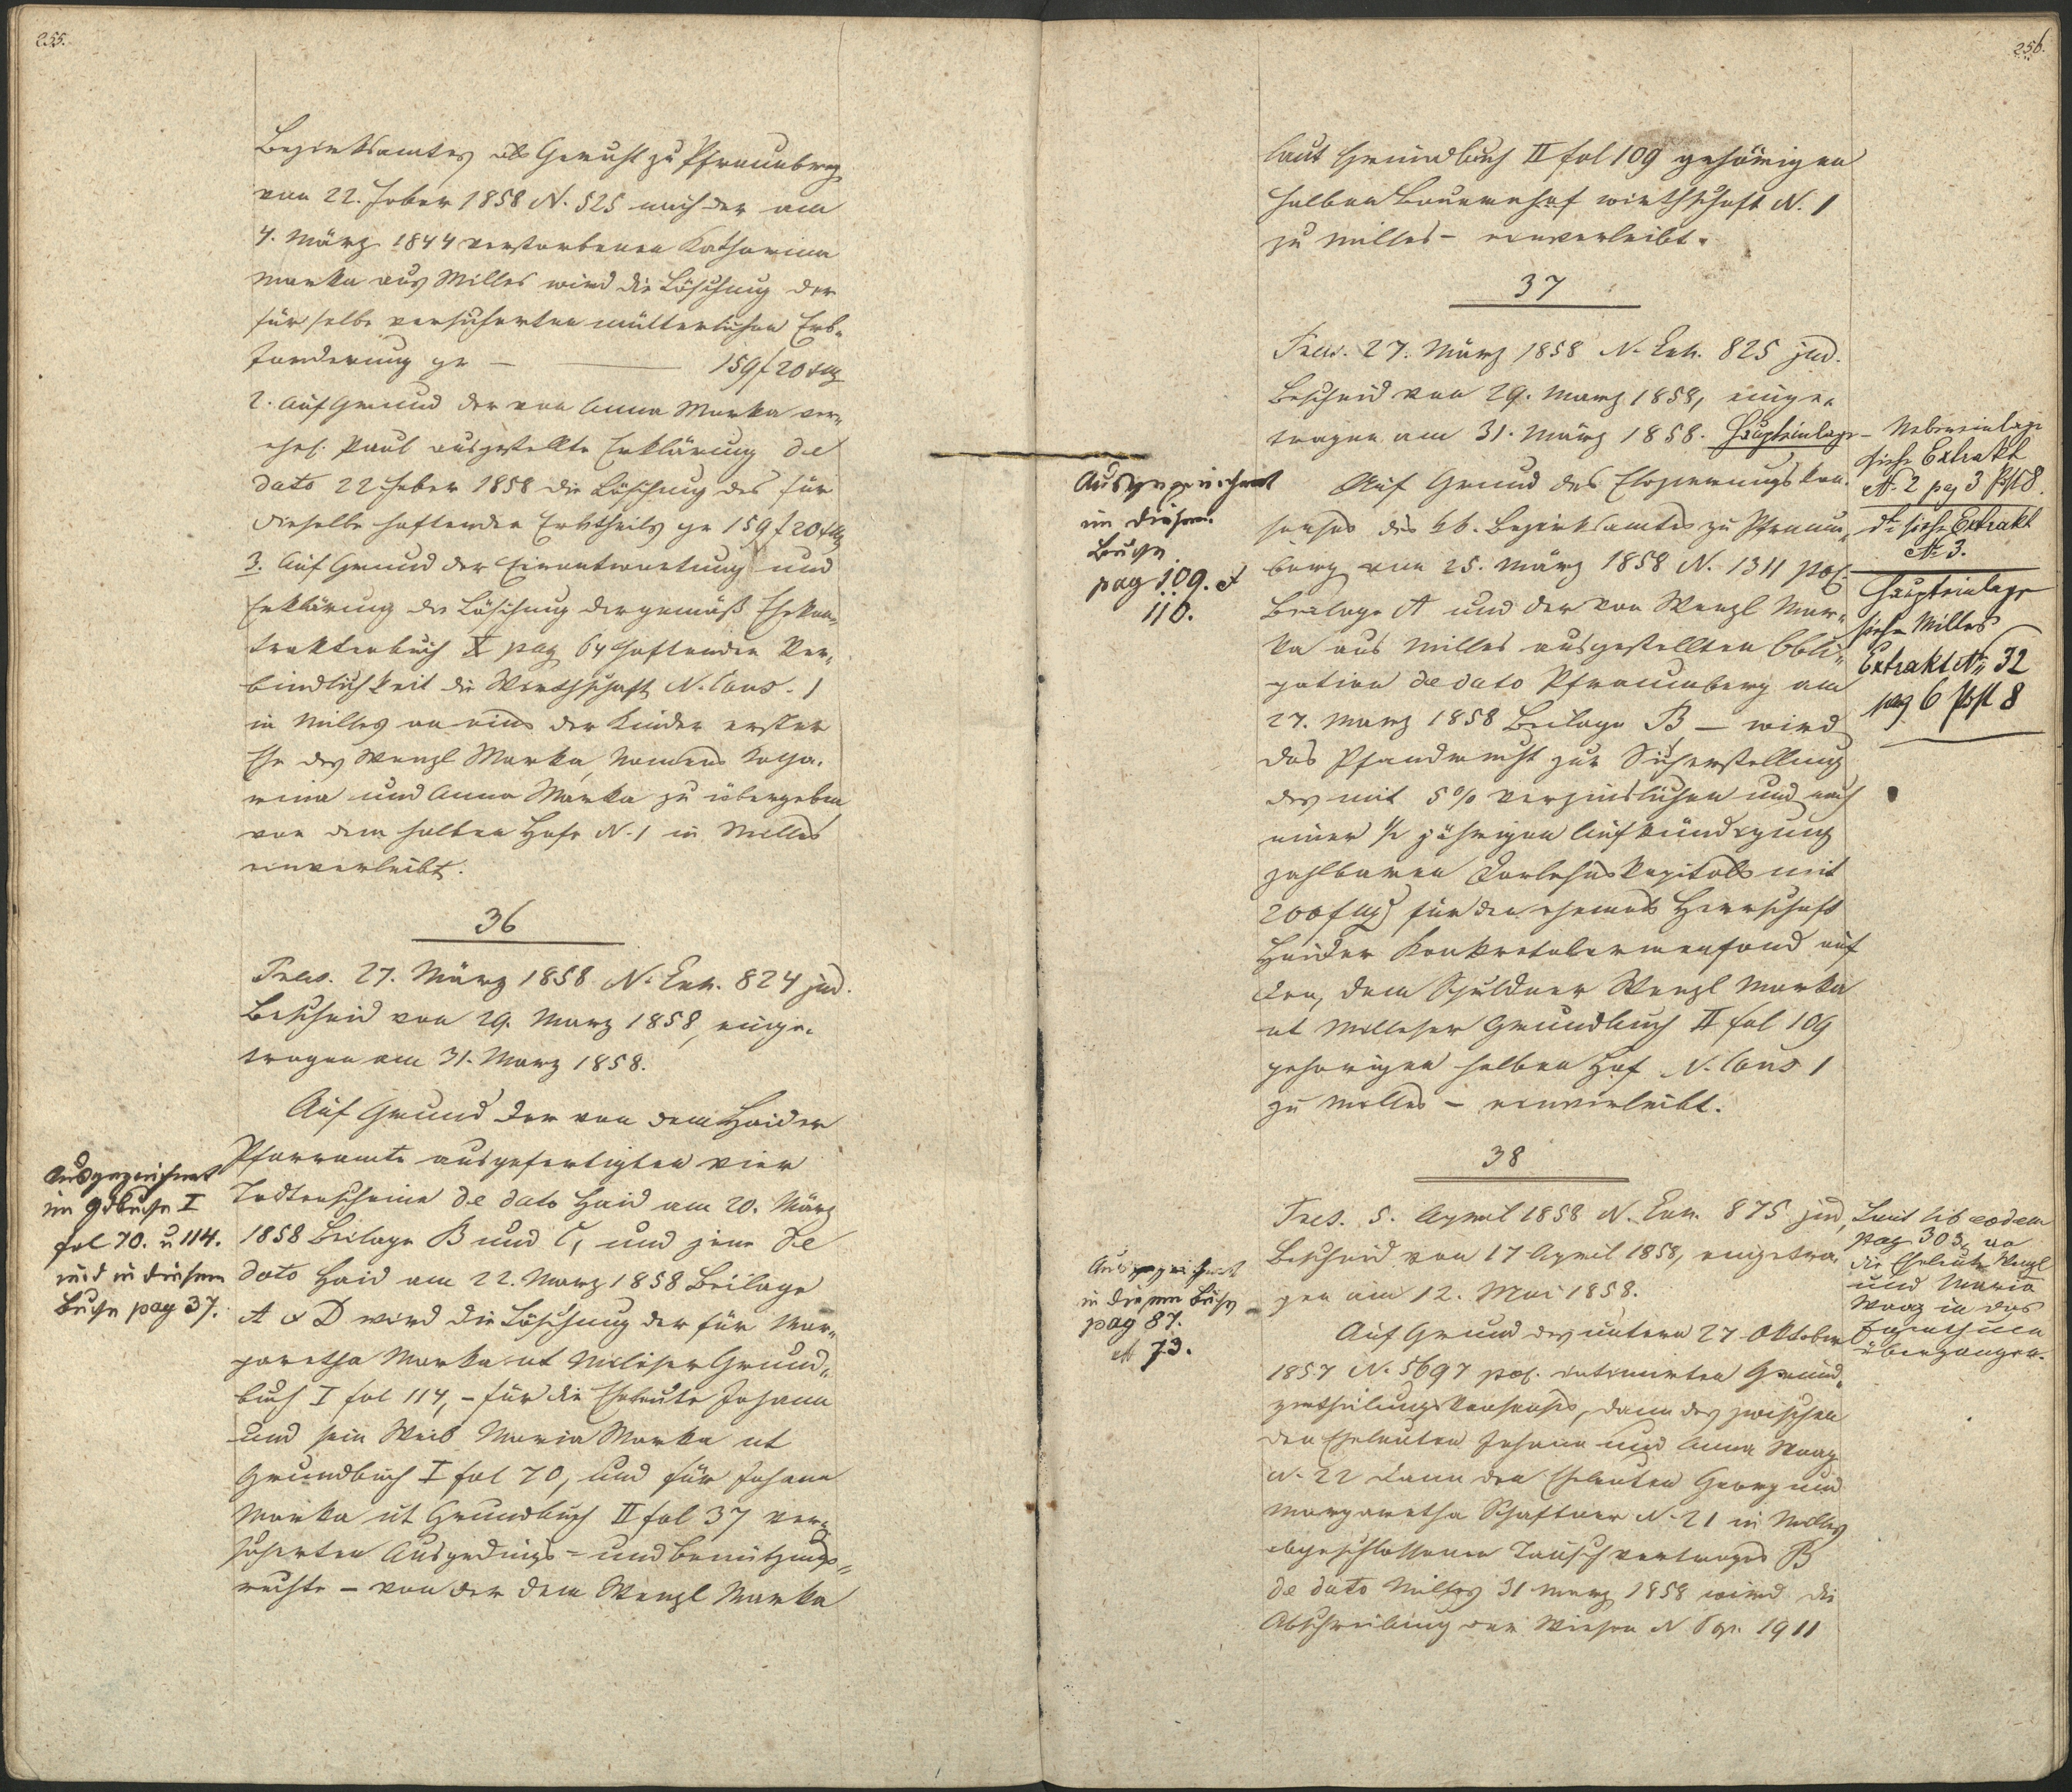 255.
Bezirksamtes als Gericht zu Pfraumberg
vom 22. Feber 1858 N. 525 nach der am
4. März 1844 verstorbenen Katharina
Marka aus Milles wird die Löschung der
für selbe versicherten mütterlichen Erb-
forderung pr — 159 f 20 x
2. Auf Grund der von Anna Marka ver-
ehel. Paul ausgestellte Erklärung de
dato 22 Feber 1858 die Löschung des für
dieselbe haftenden Erbtheils pr 159 f 20 x
3. Auf Grund der Einantwortung und
Erklärung die Löschung der gemäß Ehekon-
traktenbuch X pag 64 haftenden Ver-
bindlichkeit die Wirthschaft N. Cons. 1
in Milles an eins der Kinder erster
Ehe des Wenzl Marka, Namens Katha-
rina und Anna Marka zu übergeben
von dem halben Hofe N. 1 in Milles
einverleibt.
36
Präs. 27. März 1858 N. Exh. 824 jud.
Bescheid von 29. März 1858, einge-
tragen am 31. März 1858.
Auf Grund der von dem Haider
Pfarramte ausgefertigten vier
Todtenscheine de dato Haid am 20. März
1858 Beilage B und C, und jene de
dato Haid am 22. März 1858 Beilage
A & D wird die Löschung der für Mar-
garetha Marka ut Milleser Grund-
buch I fol 114, – für die Eheleute Johann
und sein Weib Maria Marka ut
Grundbuch I fol 70, und für Johann
Marka ut Grundbuch II fol 37 ver-
sicherten Ausgedings- und Benützungs-
rechte – von der dem Wenzl Marka
Ausgezeichnet
im Gdbuche I
fol 70. u 114.
und in diesem
Buche pag 37.
256.
laut Grundbuch II fol 109 gehörigen
halben Bauernhof wirthschaft N. 1
zu Milles – einverleibt.
37
Präs. 27. März 1858 N. Exh. 825 jud.
Bescheid von 29. März 1858, einge-
tragen am 31. März 1858. Haupteinlage
Auf Grund des Elozierungskon-
senses des kk. Bezirksamtes zu Pfraum-
berg vom 25. März 1858 N. 1311 pol.
Beilage A und der von Wenzl Mar-
ka aus Milles ausgestellten Obli-
gation de dato Pfraumberg am
27. März 1858 Beilage B – wird
das Pfandrecht zur Sicherstellung
des mit 5% verzinslichen und nach
einer ½ jährigen Aufkündigung
zahlbaren Darlehnskapitals mit
200 f für den ehemals Herrschaft
Haider Konkretalarmenfond auf
den, dem Schuldner Wenzl Marka
ut Milleser Grundbuch II fol 109
gehörigen halben Hof N. Cons 1
zu Milles – einverleibt.
Ausgezeichnet
in diesem
Buche
pag 109. &
110.
Nebeneinlage
siehe Extrakt
N. 2 pag 3 Post 8.
dto siehe Extrakt
N. 3.
Haupteinlage
siehe Milles
Extrakt No 32
pag 6 Post 8
38
Präs. 5. April 1858 N. Exh. 875 jud,
Bescheid von 17 April 1858, eingetra-
gen am 12. Mai 1858.
Auf Grund des unterm 27 Oktober
1857 N. 5697 pol. intimirten Grund-
zertheilungskonsenses, dann des zwischen
den Eheleuten Johann und Anna Waag
N. 22 dann den Eheleuten Georg und
Margaretha Schaffner N. 21 in Milles
abgeschlossenen Tauschvertrages B
de dato Milles 31 März 1858 wird die
Abschreibung der Wiesen N. 1911
Ausgezeichnet
in diesem Buche
pag 87.
& 73.
Laut lib eodem
pag 303,
die Eheleute Wenzl
und Maria
Waag in das
Eigenthum
übergangen.